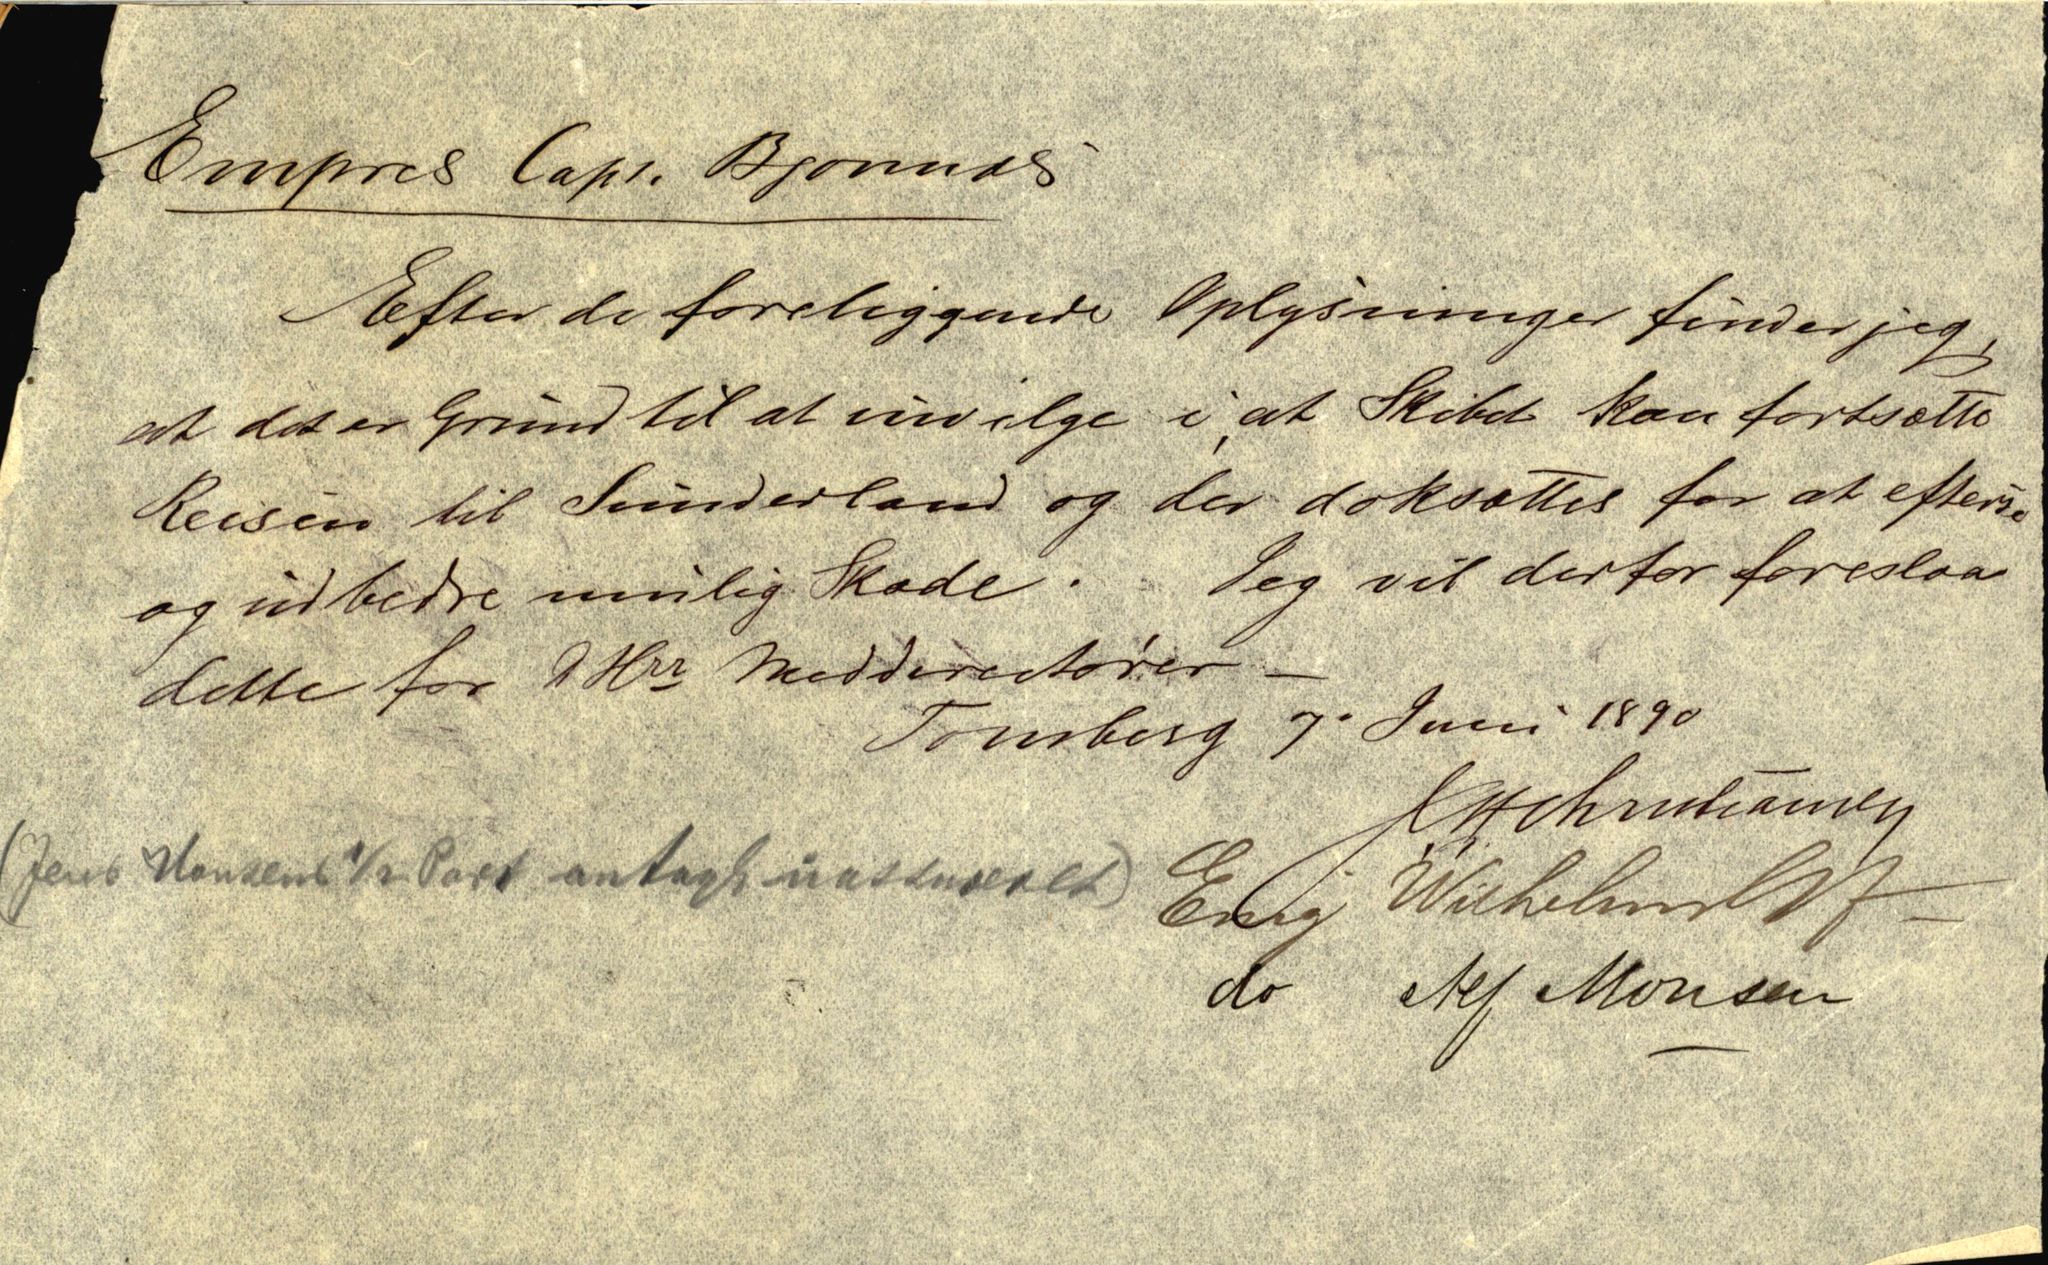 Empres Capt. Bjonnæs
Efter de foreliggende Oplysninger finder jeg,
at det er Grund til at invilge i, at Skibet kan fortsætte
Reisen til Sunderland og der doksættes for at efterse
og udbedre mulig Skade. Jeg vil derfor foreslaa
dette for DHrr Meddirectører –
Tonsberg 7. Juni 1890
Christiansen
(Jens Hansens 1/2 Part antagl. uassureret)
Enig Wilhelmsen
do Alf Monsen